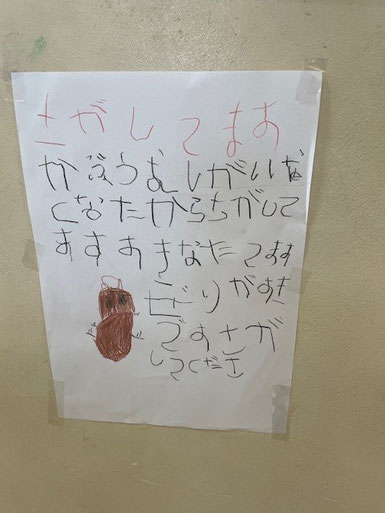 さがしてます
かぶうむしがいな
くなたからちがして
ますおきなたてます
ぜりがすき
ですさが
してくださ